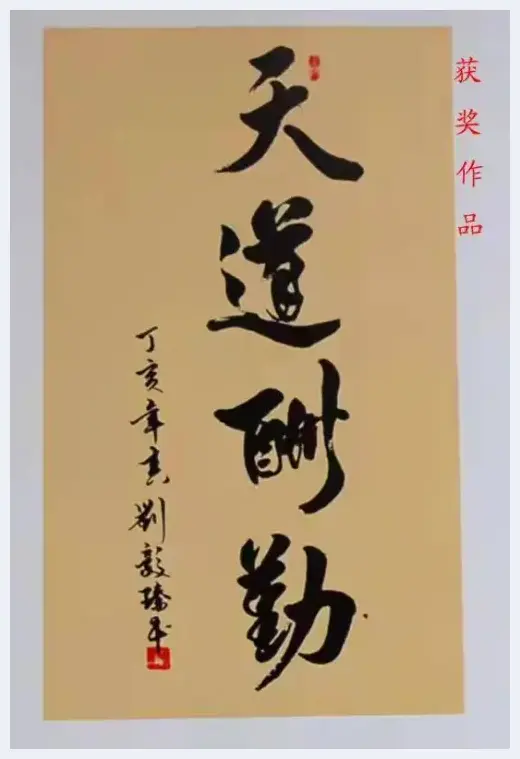 获奖作品
天道酬勤
丁亥年吉劉毅臻书